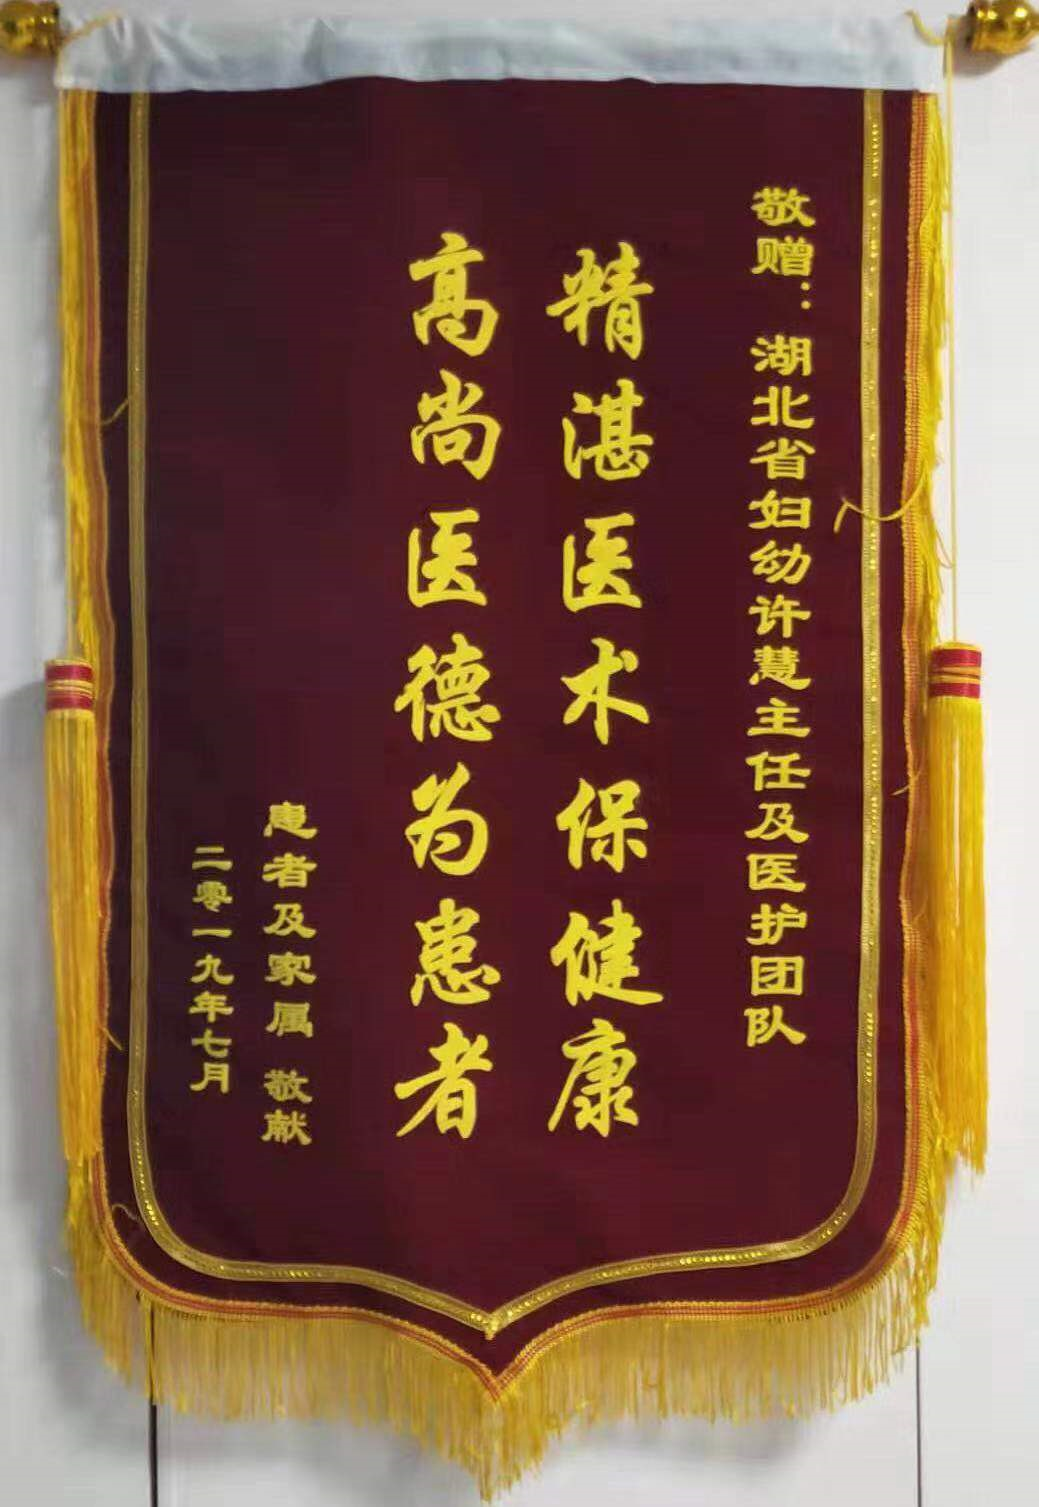 敬赠：湖北省妇幼许慧主任及医护团队
精湛医术保健康
高尚医德为患者
患者及家属 敬献
二零一九年七月